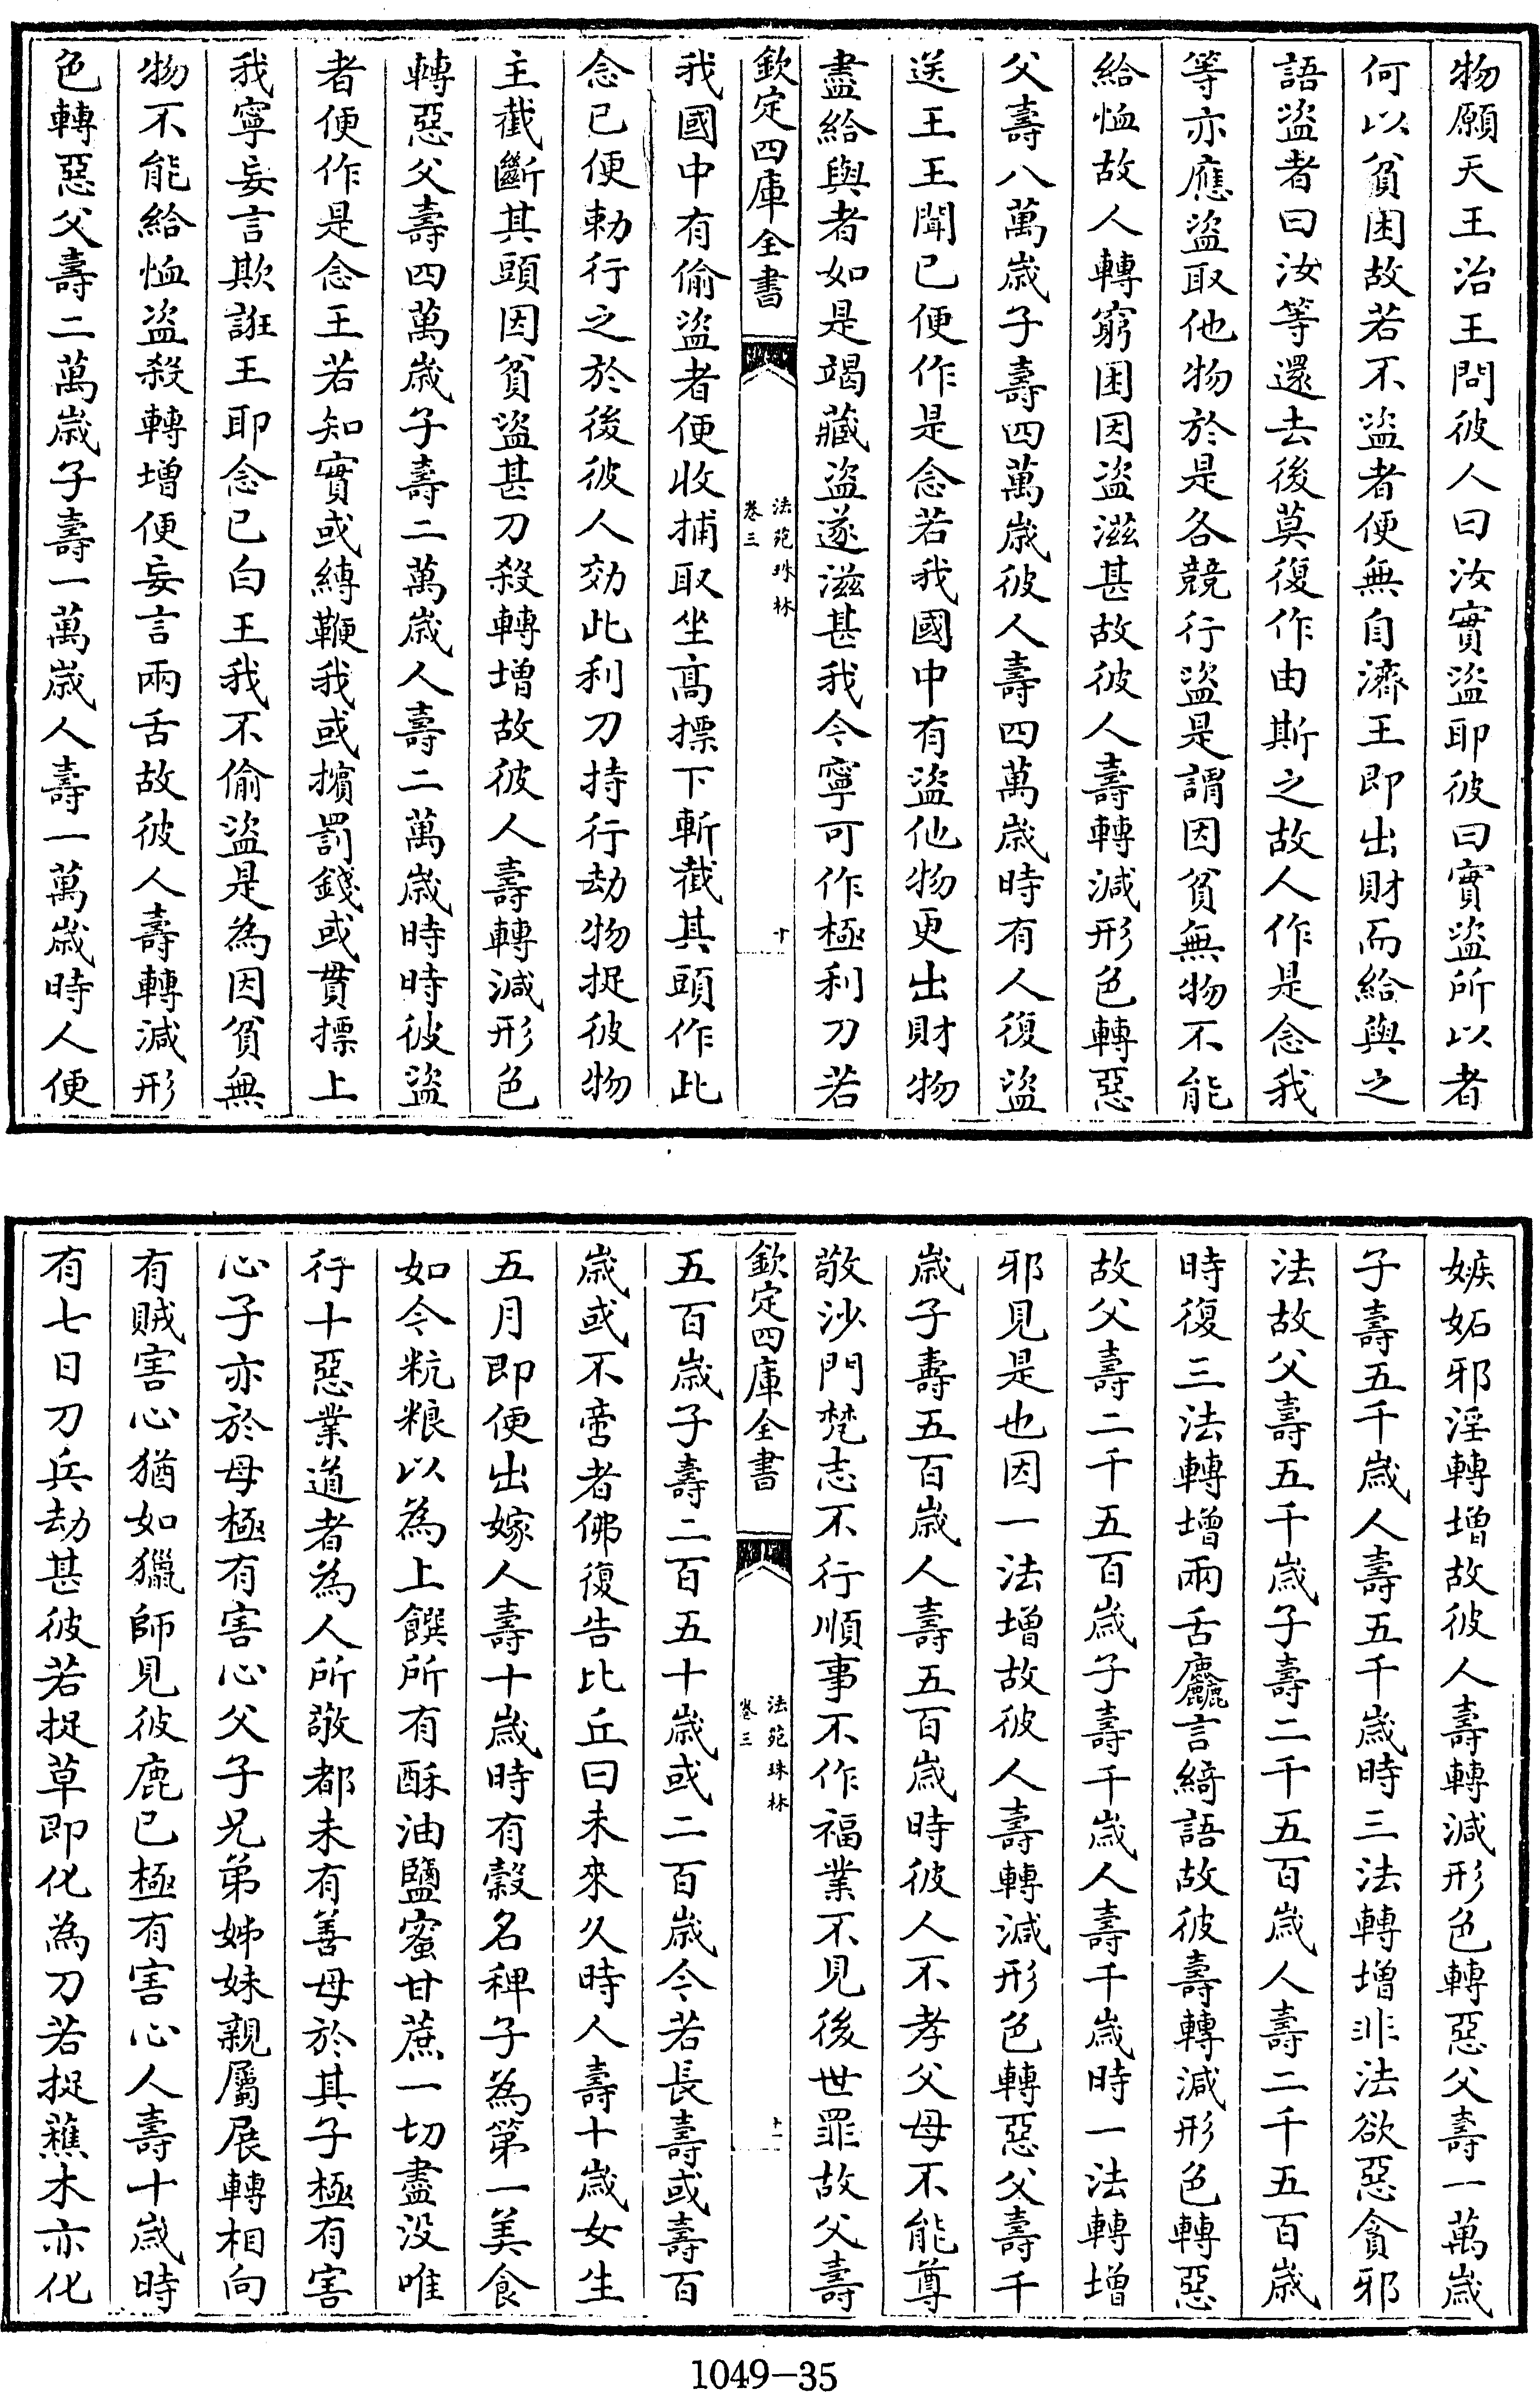 物願天王治王問彼人曰汝實盜耶彼曰實盜所以者
何以貧困故若不盜者便無自濟王即出財而給與之
語盜者曰汝等還去後莫復作由斯之故人作是念我
等亦應盜取他物於是各競行盜是謂因貧無物不能
給恤故人轉窮困因盜滋甚故彼人壽轉減形色轉惡
父壽八萬歲子壽四萬歲彼人壽四萬歲時有人復盜
送王王聞已便作是念若我國中有盜他物更出財物
盡給與者如是竭藏盜遂滋甚我今寧可作極利刀若
欽定四庫全書
法苑珠林
卷三
十
我國中有偷盜者便收捕取坐高摽下斬截其頭作此
念已便勅行之於後彼人効此利刀持行劫物捉彼物
主截斷其頭因貧盜甚刀殺轉增故彼人壽轉減形色
轉惡父壽四萬歲子壽二萬歲人壽二萬歲時時彼盜
者便作是念王若知實或縛鞭我或擯罰錢或貫摽上
我寧妄言欺誑王耶念已白王我不偷盜是為因貧無
物不能給恤盜殺轉增便妄言兩舌故彼人壽轉減形
色轉惡父壽二萬歲子壽一萬歲人壽一萬歲時人便
嫉妬邪淫轉增故彼人壽轉減形色轉惡父壽一萬歲
子壽五千歲人壽五千歲時三法轉增非法欲惡貪邪
法故父壽五千歲子壽二千五百歲人壽二千五百歲
時復三法轉增兩舌麤言綺語故彼壽轉減形色轉惡
故父壽二千五百歲子壽千歲人壽千歲時一法轉增
邪見是也因一法增故彼人壽轉減形色轉惡父壽千
歲子壽五百歲人壽五百歲時彼人不孝父母不能尊
敬沙門梵志不行順事不作福業不見後世罪故父壽
欽定四庫全書
法苑珠林
卷三
十一
五百歲子壽二百五十歲或二百歲今若長壽或壽百
歲或不啻者佛復告比丘曰未來久時人壽十歲女生
五月即便出嫁人壽十歲時有穀名稗子為第一美食
如今粇粮以為上饌所有酥油鹽蜜甘蔗一切盡沒唯
行十惡業道者為人所敬都未有善母於其子極有害
心子亦於母極有害心父子兄弟姊妹親屬展轉相向
有賊害心猶如獵師見彼鹿已極有害心人壽十歲時
有七日刀兵劫甚彼若捉草即化為刀若捉蕉木亦化
1049-35